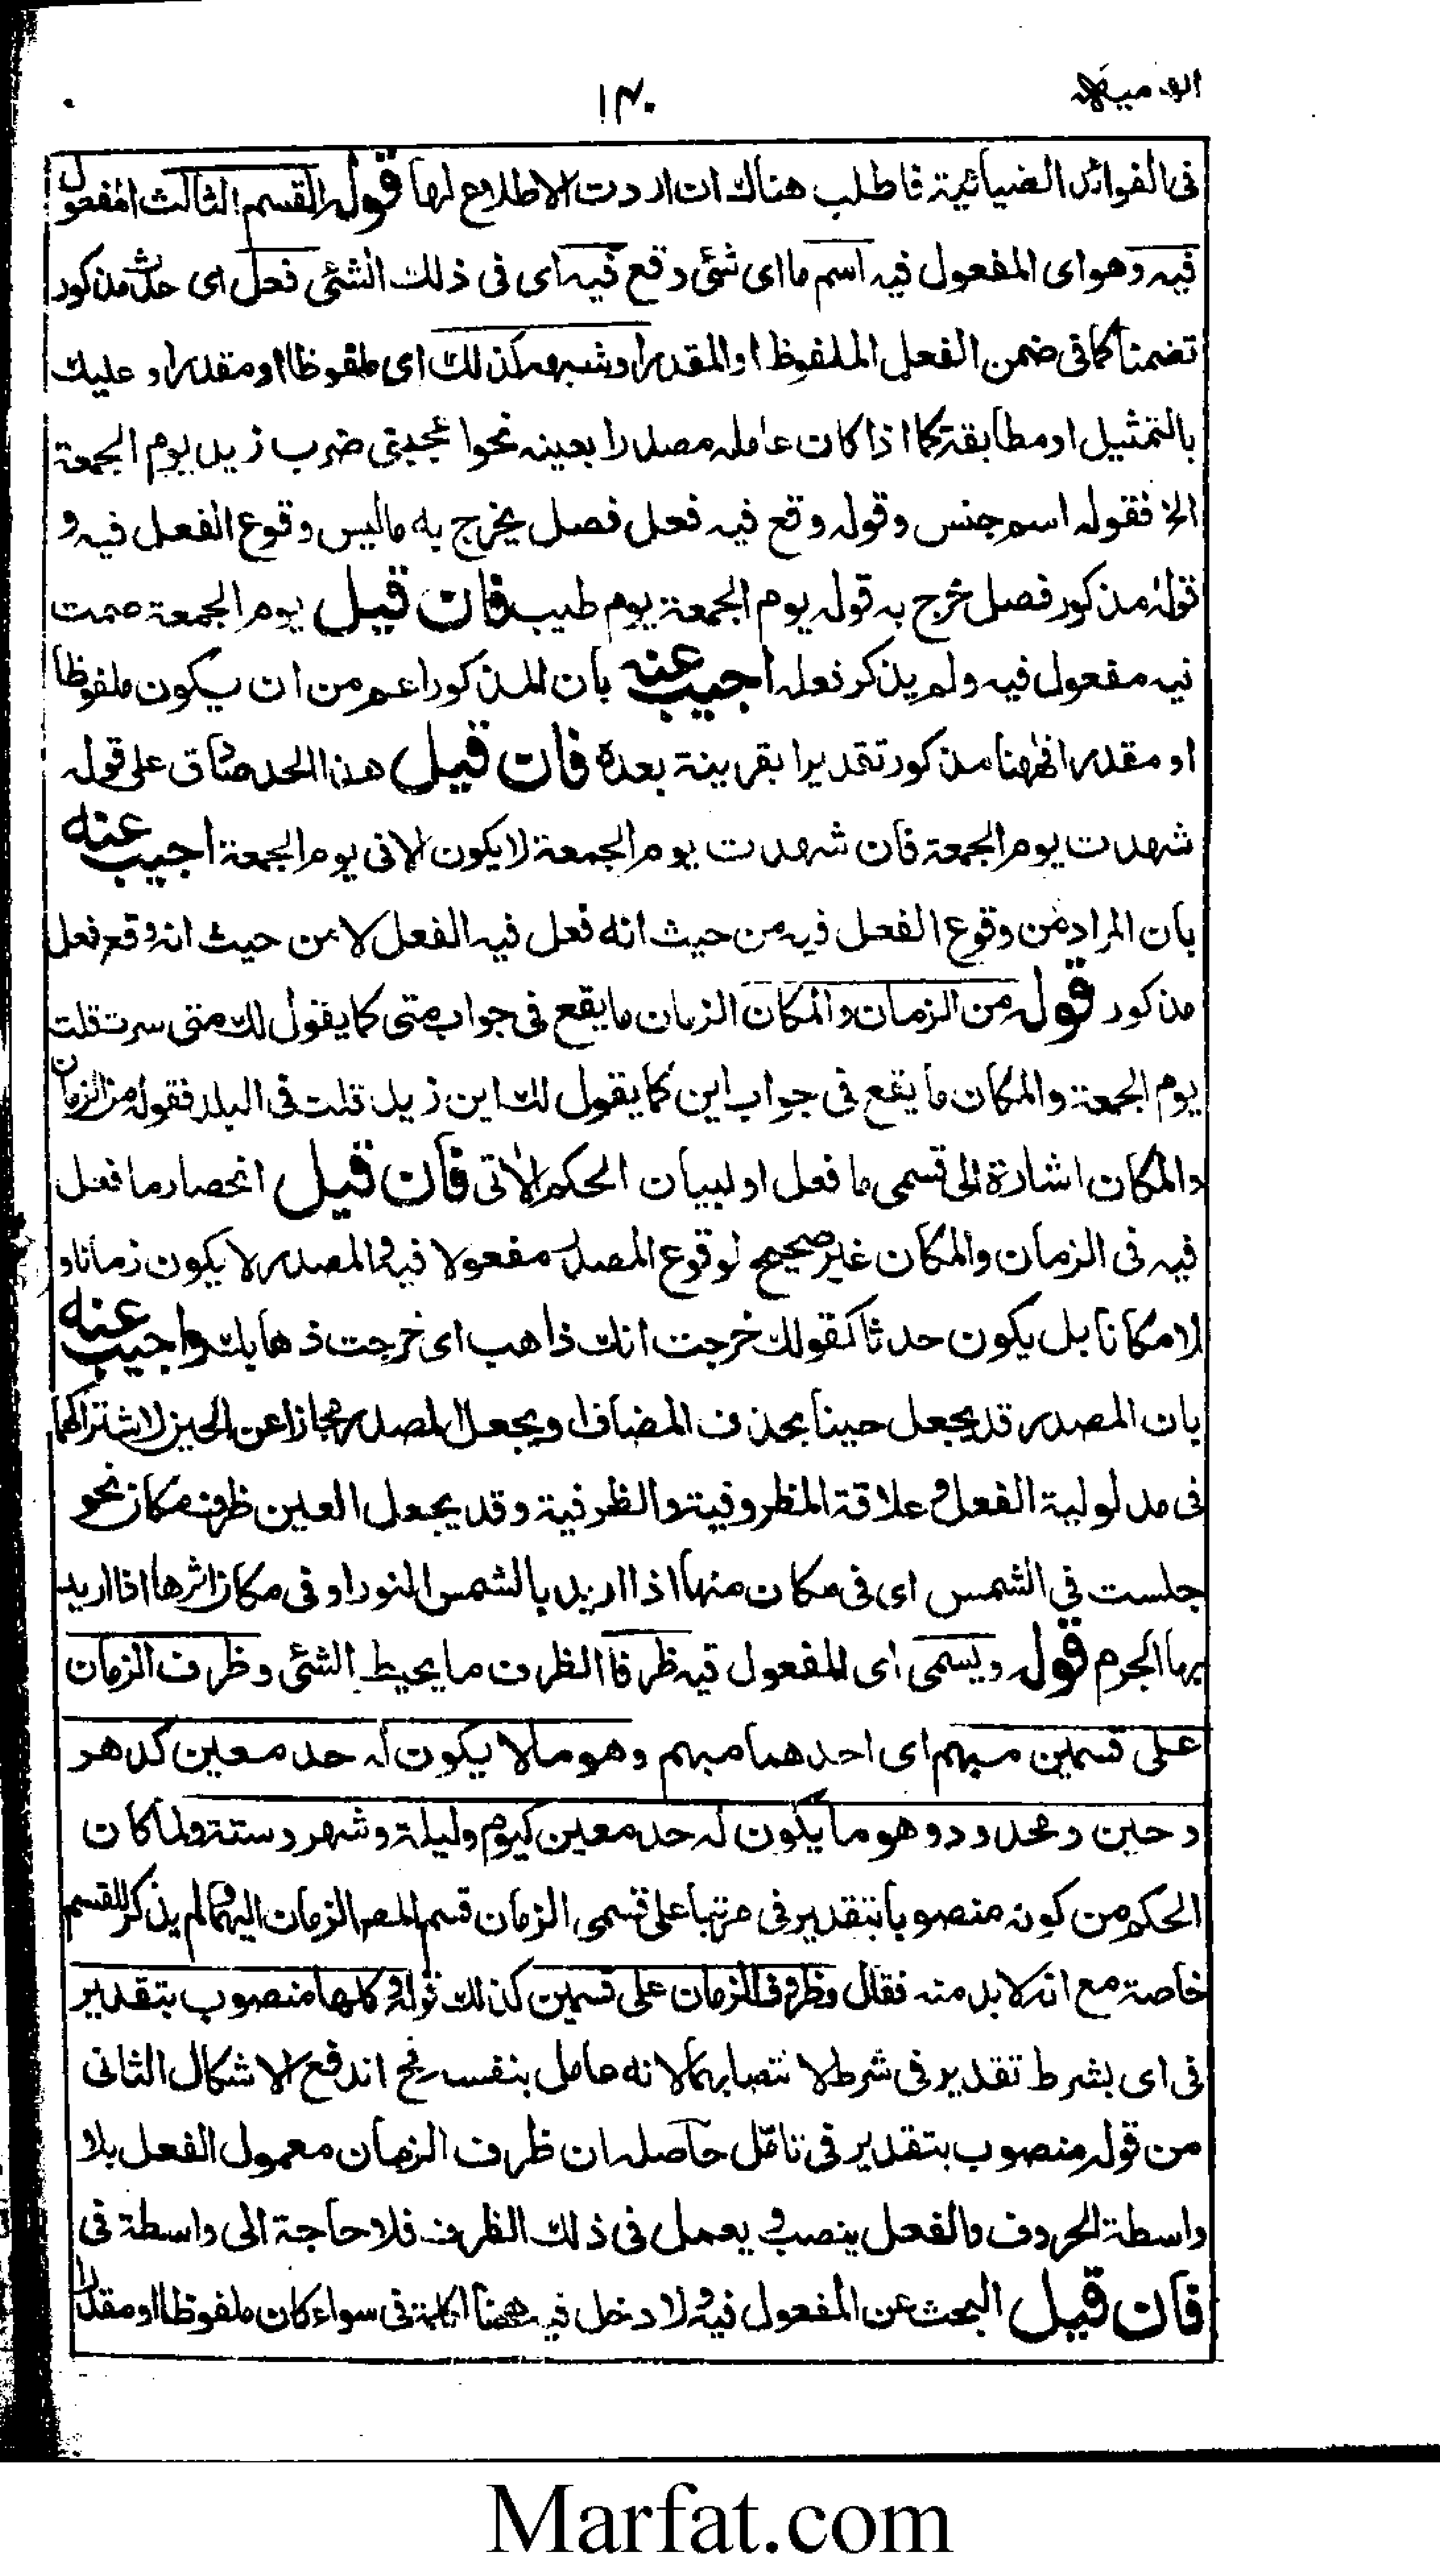 ١٣٠
فى الفوائد الضيائية فاطلب هناك ان اردت الاطلاع لها قوله القسم الثالث المفعول
فيه وهو اى المفعول فيه اسم ما اى شئى وقع فيه اى فى ذلك الشئى فعل اى حدث مذكور
تضمنا كما فى ضمن الفعل الملفوظ او المقدر او شبهه كذلك اى ملفوظا او مقدرا وعليك
بالتمثيل او مطابقة كما اذا كان عامله مصدرا بعينه نحو اعجبنى ضرب زيد يوم الجمعة
الخ فقوله اسم جنس وقوله وقع فيه فعل فصل يخرج به ما ليس وقوع الفعل فيه و
قوله مذكور فصل خرج به قوله يوم الجمعة يوم طيب فان قيل يوم الجمعة صمت
فيه مفعول فيه ولم يذكر فعله اجيب عنه بان المذكور اعم من ان يكون ملفوظا
او مقدرا فههنا مذكور تقديرا بقرينة بعده فان قيل هذا الحد صادق على قوله
شهدت يوم الجمعة فان شهدت يوم الجمعة لا يكون الا فى يوم الجمعة اجيب عنه
بان المراد من وقوع الفعل فيه من حيث انه فعل فيه الفعل لا من حيث انه وقع فعل
مذكور قوله من الزمان والمكان الزمان ما يقع فى جواب متى كما يقول لك متى سرت قلت
يوم الجمعة والمكان ما يقع فى جواب اين كما يقول لك اين زيد قلت فى البلد فقوله من الزمان
والمكان اشارة الى قسمى ما فعل او لبيان الحكم الاتى فان قيل انحصار ما فعل
فيه فى الزمان والمكان غير صحيح لوقوع المصدر مفعولا فيه والمصدر لا يكون زمانا و
لا مكانا بل يكون حدثا كقولك خرجت انك ذاهب اى خرجت ذهابك واجيب عنه
بان المصدر قد يجعل حينا بحذف المضاف او يجعل المصدر مجازا عن الحين لاشتراكهما
فى مدلولية الفعل و علاقة المظروفية والظرفية وقد يجعل العين ظرف مكان نحو
جلست فى الشمس اى فى مكان منها اذا اريد بالشمس النور او فى مكان اثرها اذا اريد
بها الجرم قوله ويسمى اى المفعول فيه ظرفا الظرف ما يحيط الشئى وظرف الزمان
على قسمين مبهم اى احدهما مبهم وهو ما لا يكون له حد معين كدهر
و حين و محدود وهو ما يكون له حد معين كيوم وليلة وشهر وسنة ولما كان
الحكم من كونه منصوبا بتقدير فى مرتبا على قسمى الزمان قسم المصـ الزمان اليهما ولم يذكر للقسم
خاصة مع انه لا بد منه فقال وظرف الزمان على قسمين كذلك قوله وكلها منصوب بتقدير
فى اى بشرط تقدير فى شرط لا نتصابهما لانه عامل بنفسه فح اندفع الاشكال الثانى
من قوله منصوب بتقدير فى تامّل حاصله ان ظرف الزمان معمول الفعل بلا
واسطة الحروف والفعل ينصب و يعمل فى ذلك الظرف فلا حاجة الى واسطة فى
فان قيل البحث عن المفعول فيه ولا دخل فيه ههنا كلمة فى سواء كان ملفوظا او مقدرا
Marfat.com